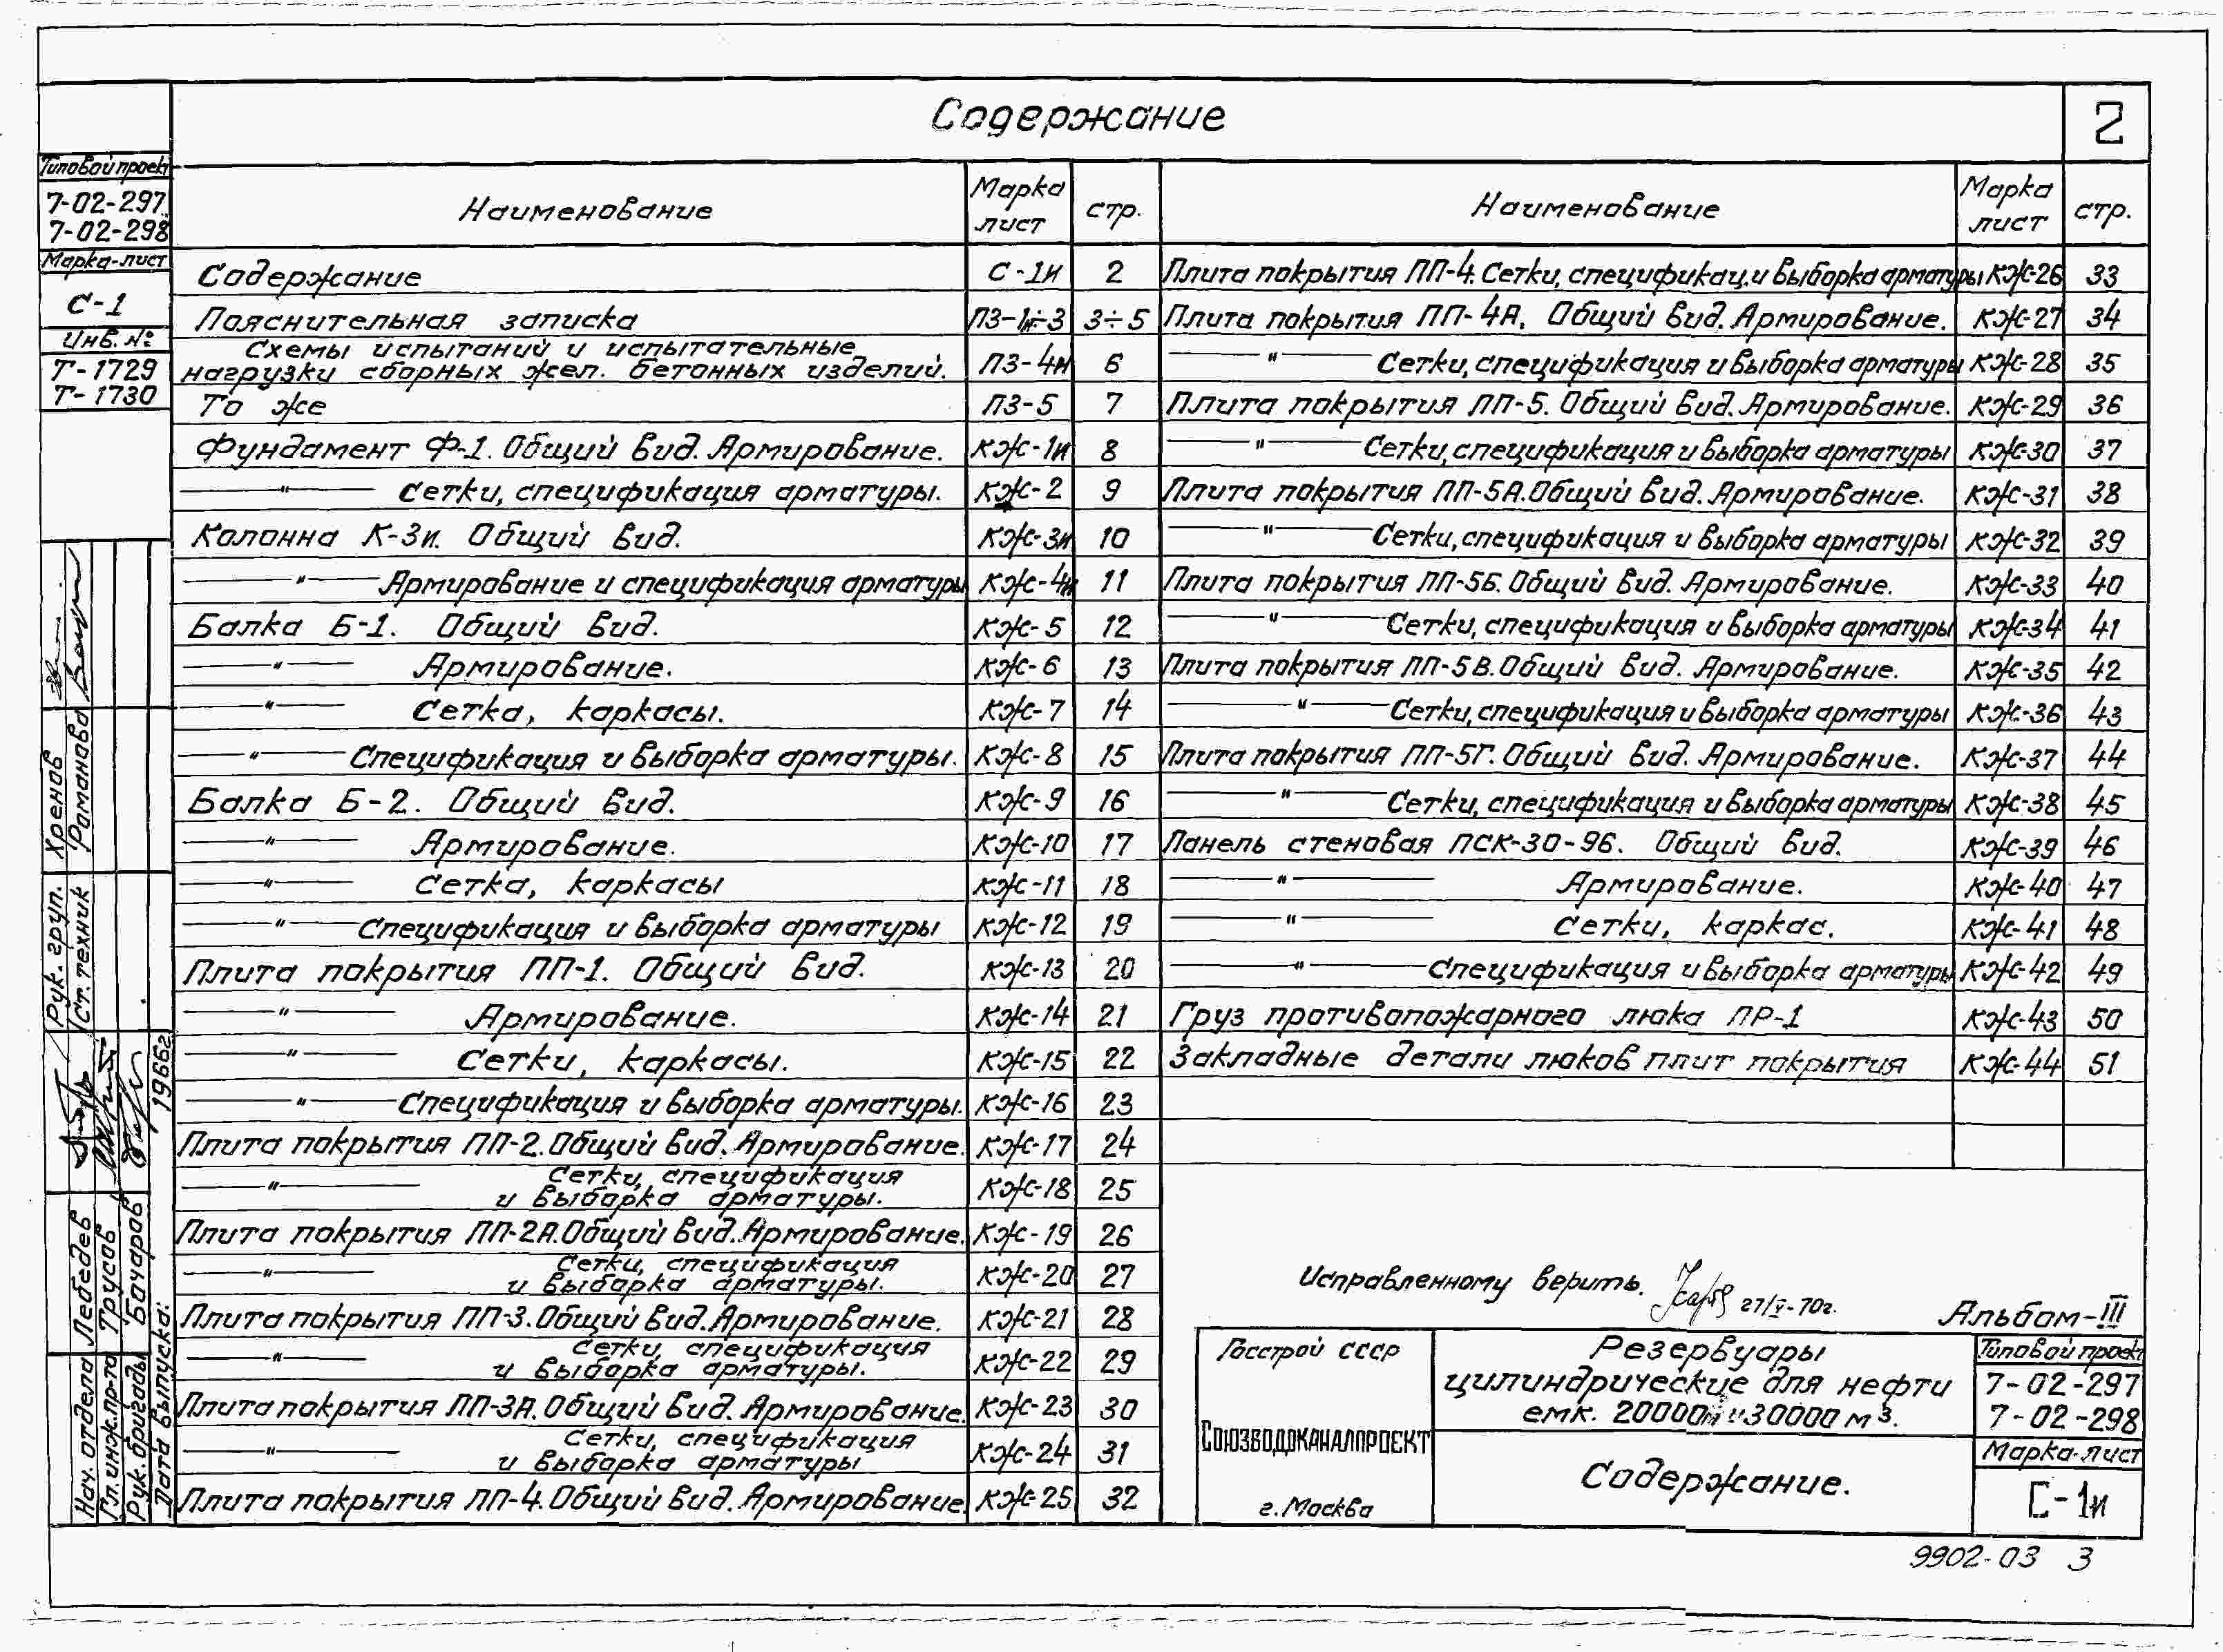 Содержание
2
Типовой проект
7-02-297
7-02-298
Марка-лист
С-1
Инв. №:
Т-1729
Т-1730
Наименование Марка лист стр.
Содержание С-1и 2
Пояснительная записка ПЗ-1и÷3 3÷5
Схемы испытаний и испытательные
нагрузки сборных жел. бетонных изделий. ПЗ-4и 6
То же ПЗ-5 7
Фундамент Ф-1. Общий вид. Армирование. КЖ-1и 8
—"— Сетки, спецификация арматуры. КЖ-2 9
Колонна К-3и. Общий вид. КЖ-3и 10
—"— Армирование и спецификация арматуры КЖ-4и 11
Балка Б-1. Общий вид. КЖ-5 12
—"— Армирование. КЖ-6 13
—"— Сетка, каркасы. КЖ-7 14
—"— Спецификация и выборка арматуры. КЖ-8 15
Балка Б-2. Общий вид. КЖ-9 16
—"— Армирование. КЖ-10 17
—"— Сетка, каркасы КЖ-11 18
—"— Спецификация и выборка арматуры КЖ-12 19
Плита покрытия ПП-1. Общий вид. КЖ-13 20
—"— Армирование. КЖ-14 21
—"— Сетки, каркасы. КЖ-15 22
—"— Спецификация и выборка арматуры. КЖ-16 23
Плита покрытия ПП-2. Общий вид. Армирование. КЖ-17 24
—"— Сетки, спецификация
и выборка арматуры. КЖ-18 25
Плита покрытия ПП-2А. Общий вид. Армирование. КЖ-19 26
—"— Сетки, спецификация
и выборка арматуры. КЖ-20 27
Плита покрытия ПП-3. Общий вид. Армирование. КЖ-21 28
—"— Сетки, спецификация
и выборка арматуры. КЖ-22 29
Плита покрытия ПП-3А. Общий вид. Армирование. КЖ-23 30
—"— Сетки, спецификация
и выборка арматуры КЖ-24 31
Плита покрытия ПП-4. Общий вид. Армирование. КЖ-25 32
Наименование Марка лист стр.
Плита покрытия ПП-4. Сетки, спецификац. и выборка арматуры КЖ-26 33
Плита покрытия ПП-4А. Общий вид. Армирование. КЖ-27 34
—"— Сетки, спецификация и выборка арматуры КЖ-28 35
Плита покрытия ПП-5. Общий вид. Армирование. КЖ-29 36
—"— Сетки, спецификация и выборка арматуры КЖ-30 37
Плита покрытия ПП-5А. Общий вид. Армирование. КЖ-31 38
—"— Сетки, спецификация и выборка арматуры КЖ-32 39
Плита покрытия ПП-5Б. Общий вид. Армирование. КЖ-33 40
—"— Сетки, спецификация и выборка арматуры КЖ-34 41
Плита покрытия ПП-5В. Общий вид. Армирование. КЖ-35 42
—"— Сетки, спецификация и выборка арматуры КЖ-36 43
Плита покрытия ПП-5Г. Общий вид. Армирование. КЖ-37 44
—"— Сетки, спецификация и выборка арматуры КЖ-38 45
Панель стеновая ПСК-30-96. Общий вид. КЖ-39 46
—"— Армирование. КЖ-40 47
—"— Сетки, каркас. КЖ-41 48
—"— Спецификация и выборка арматуры КЖ-42 49
Груз противопожарного люка ПР-1 КЖ-43 50
Закладные детали люков плит покрытия КЖ-44 51
Исправленному верить. 27/V-70г.
Альбом-III
Госстрой СССР
СОЮЗВОДОКАНАЛПРОЕКТ
г. Москва
Резервуары
цилиндрические для нефти
емк. 20000м³ и 30000 м³.
Содержание.
Типовой проект
7-02-297
7-02-298
Марка-лист
С-1и
9902-03 3
Рук. груп. Хренов
Ст. техник Романова
Нач. отдела Лебедев
Гл. инж. пр-та Трусов
Рук. бригады Бочаров
Дата выпуска: 1966г